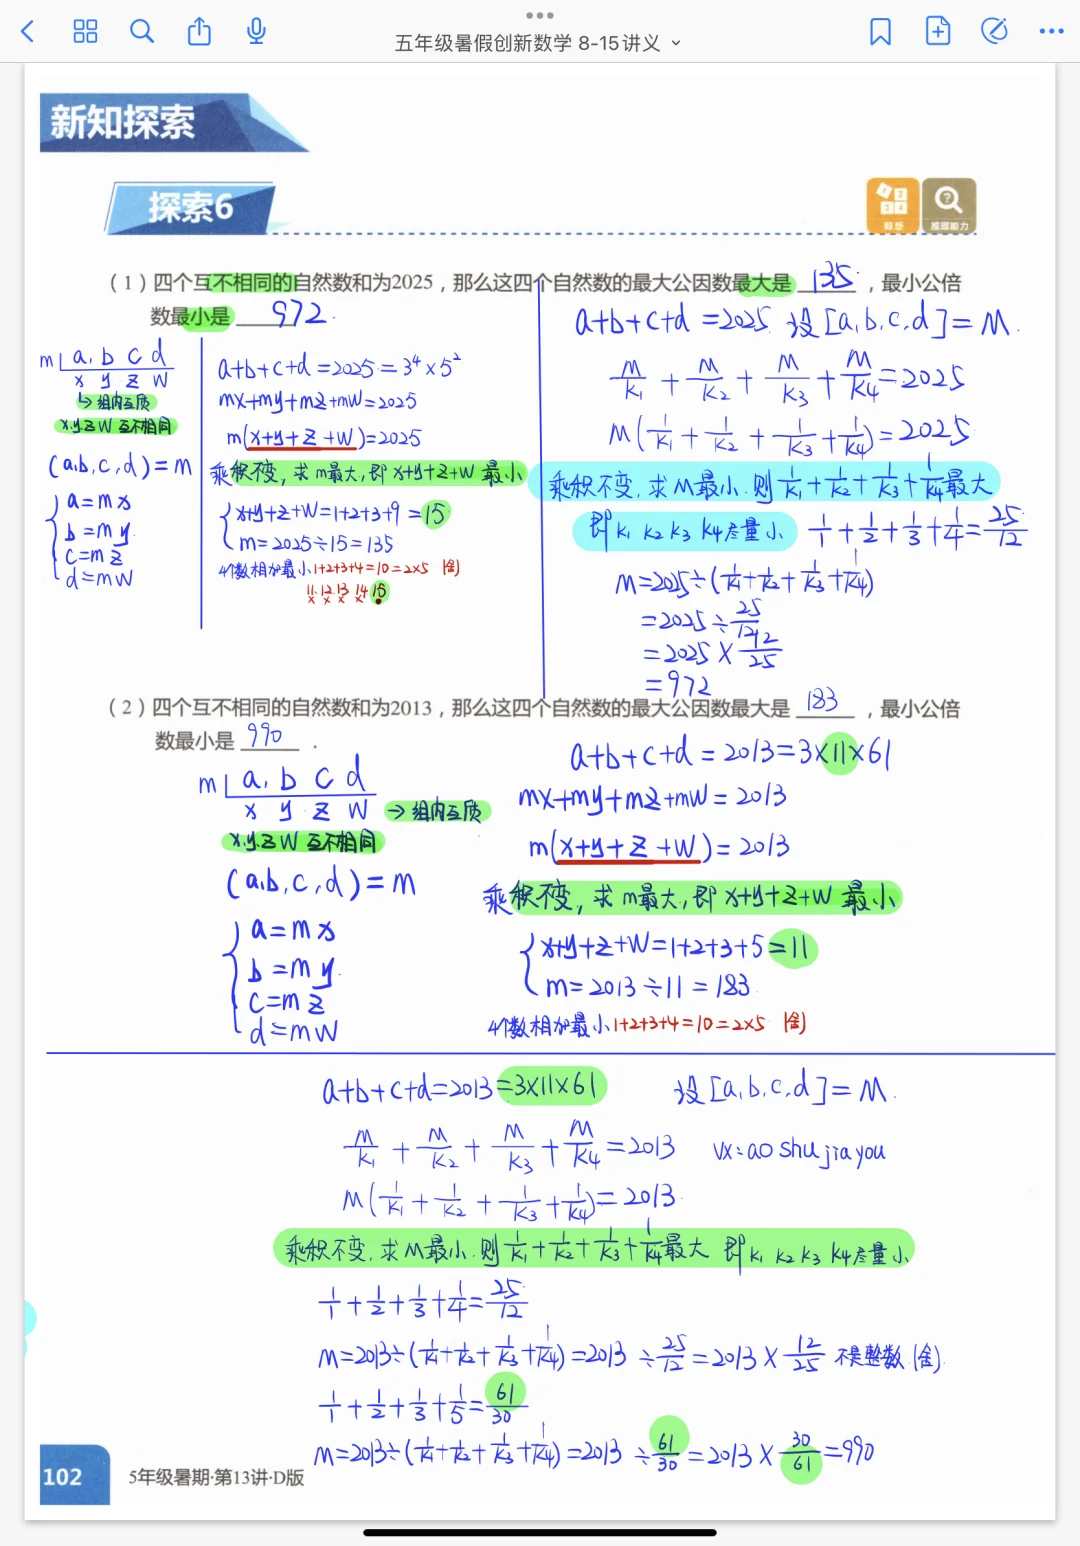 五年级暑假创新数学 8-15讲义
新知探索
探索6
数感
推理能力
（1）四个互不相同的自然数和为2025，那么这四个自然数的最大公因数最大是 135 ，最小公倍
数最小是 972 .
m a, b c d
x y z w
↳ 组内互质
x.y.z w 互不相同
(a,b,c,d) = m
a=mx
b=my
c=mz
d=mw
a+b+c+d=2025=3⁴×5²
mx+my+mz+mw=2025
m(x+y+z+w)=2025
乘积不变,求m最大,即x+y+z+w最小
x+y+z+w=1+2+3+9=15
m=2025÷15=135
4个数相加最小1+2+3+4=10=2×5 (舍)
11 12 13 14 15
x x x x
a+b+c+d=2025 设[a,b,c,d]=M.
M/k₁ + M/k₂ + M/k₃ + M/k₄=2025
M(1/k₁+1/k₂+1/k₃+1/k₄)=2025
乘积不变,求M最小.则1/k₁+1/k₂+1/k₃+1/k₄最大
即k₁ k₂ k₃ k₄尽量小 1/1+1/2+1/3+1/4=25/12
M=2025÷(1/k₁+1/k₂+1/k₃+1/k₄)
=2025÷25/12
=2025×12/25
=972
（2）四个互不相同的自然数和为2013，那么这四个自然数的最大公因数最大是 183 ，最小公倍
数最小是 990 .
m a, b c d
x y z w → 组内互质
x.y.z w 互不相同
(a,b,c,d)=m
a=mx
b=my.
c=mz
d=mw
a+b+c+d=2013=3×11×61
mx+my+mz+mw=2013
m(x+y+z+w)=2013
乘积不变,求m最大,即x+y+z+w最小
x+y+z+w=1+2+3+5=11
m=2013÷11=183
4个数相加最小1+2+3+4=10=2×5 (舍)
a+b+c+d=2013=3×11×61 设[a,b,c,d]=M.
M/k₁ + M/k₂ + M/k₃ + M/k₄=2013 vx:aoshujiayou
M(1/k₁+1/k₂+1/k₃+1/k₄)=2013
乘积不变,求M最小.则1/k₁+1/k₂+1/k₃+1/k₄最大 即k₁ k₂ k₃ k₄尽量小
1/1+1/2+1/3+1/4=25/12
M=2013÷(1/k₁+1/k₂+1/k₃+1/k₄)=2013÷25/12=2013×12/25 不是整数(舍)
1/1+1/2+1/3+1/5=61/30
M=2013÷(1/k₁+1/k₂+1/k₃+1/k₄)=2013÷61/30=2013×30/61=990
102
5年级暑期·第13讲·D版